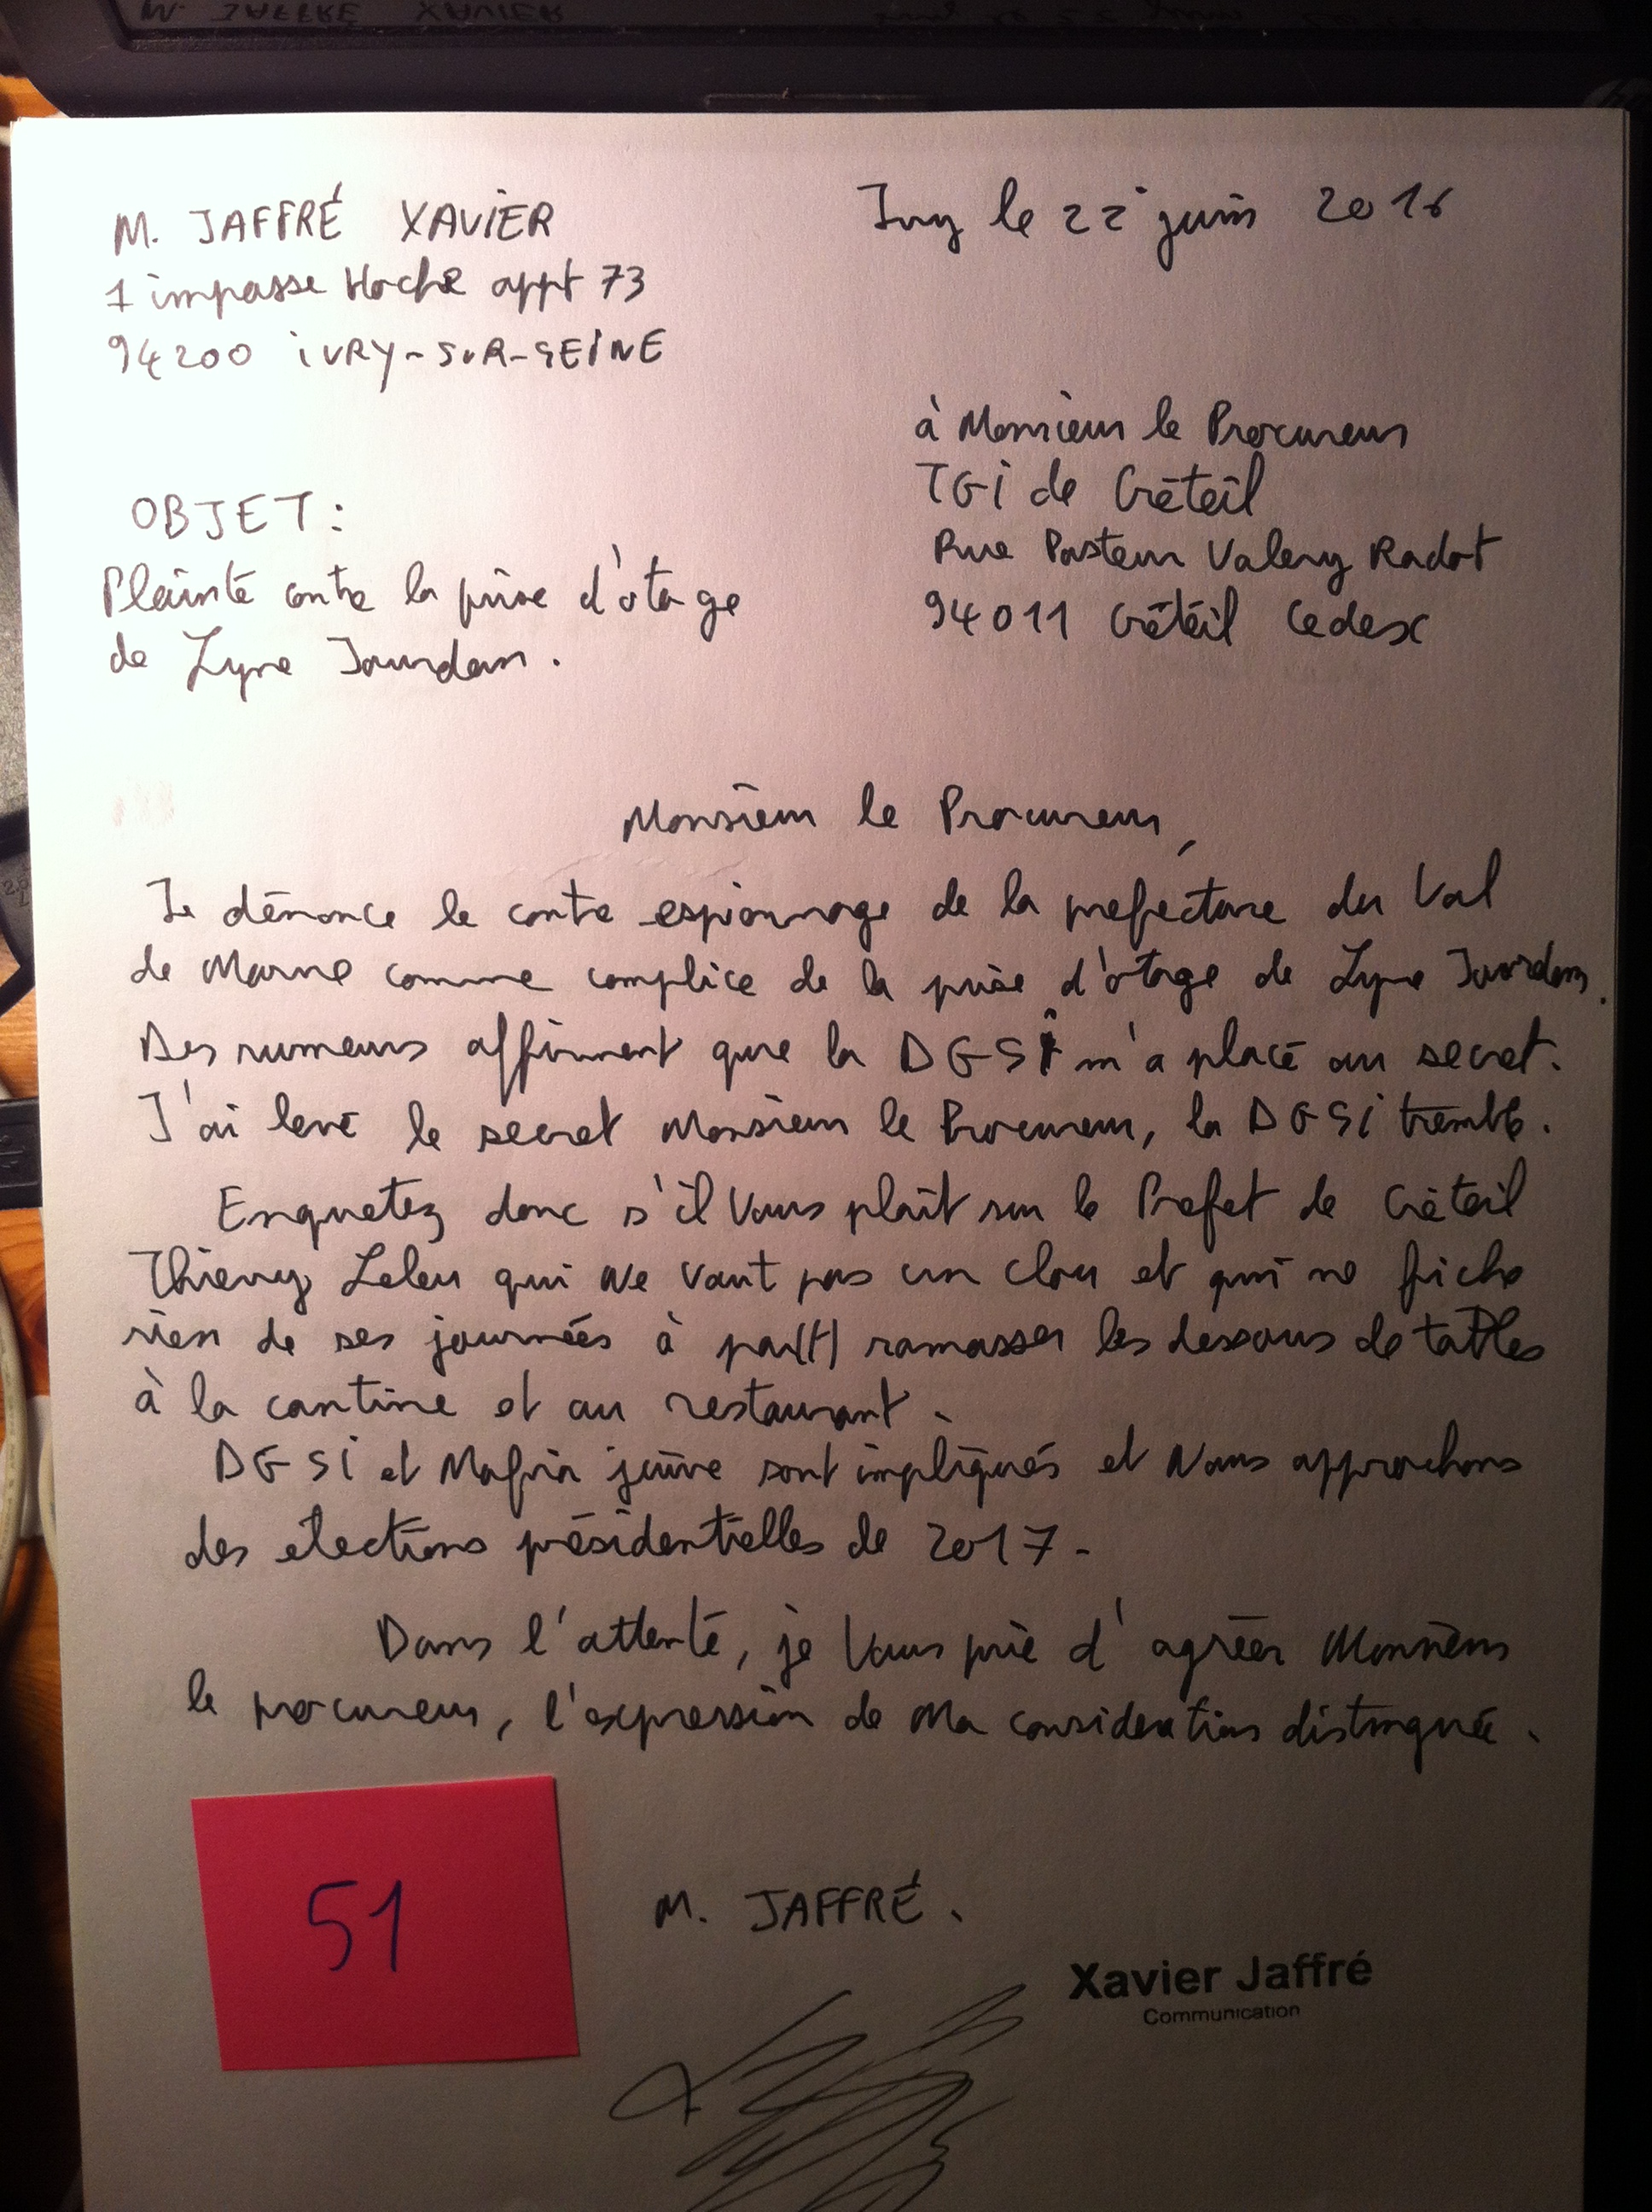 M. JAFFRÉ XAVIER
1 impasse Hoche appt 73
94200 IVRY-SUR-SEINE
Ivry le 22 juin 2016
à Monsieur le Procureur
TGI de Créteil
Rue Pasteur Valery Radot
94011 Créteil Cedex
OBJET :
Plainte contre la prise d'otage
de Lyne Jourdan.
Monsieur le Procureur,
Je dénonce le contre espionnage de la prefecture du Val
de Marne comme complice de la prise d'otage de Lyne Jourdan.
Des rumeurs affirment que la DGSI m'a placé au secret.
J'ai levé le secret Monsieur le Procureur, la DGSI tremble.
Enquetez donc s'il vous plaît sur le Prefet de Créteil
Thierry Leleu qui ne vaut pas un clou et qui ne fiche
rien de ses journées à part ramasser les dessous de tables
à la cantine et au restaurant.
DGSI et Mafia juive sont impliqués et nous approchons
des élections présidentielles de 2017-
Dans l'attente, je vous prie d'agréer Monsieur
le procureur, l'expression de ma consideration distinguée.
51
M. JAFFRÉ.
Xavier Jaffré
Communication